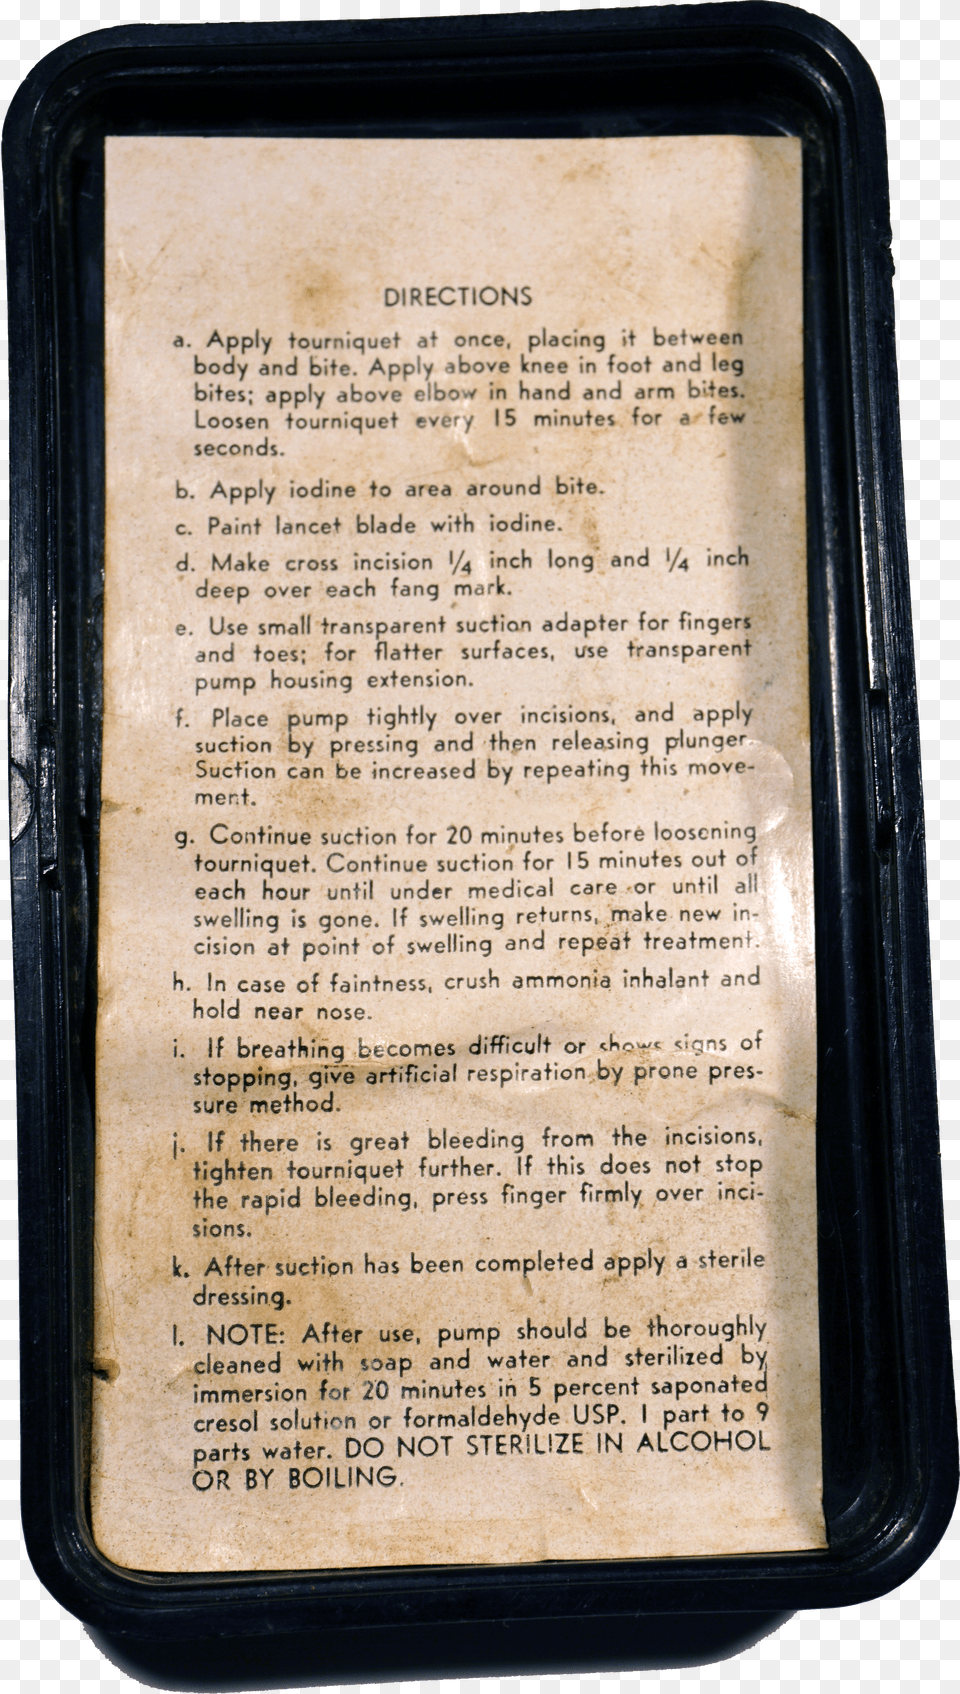 DIRECTIONS
a. Apply tourniquet at once, placing it between
body and bite. Apply above knee in foot and leg
bites; apply above elbow in hand and arm bites.
Loosen tourniquet every 15 minutes for a few
seconds.
b. Apply iodine to area around bite.
c. Paint lancet blade with iodine.
d. Make cross incision 1/4 inch long and 1/4 inch
deep over each fang mark.
e. Use small transparent suction adapter for fingers
and toes; for flatter surfaces, use transparent
pump housing extension.
f. Place pump tightly over incisions, and apply
suction by pressing and then releasing plunger.
Suction can be increased by repeating this move-
ment.
g. Continue suction for 20 minutes before loosening
tourniquet. Continue suction for 15 minutes out of
each hour until under medical care or until all
swelling is gone. If swelling returns, make new in-
cision at point of swelling and repeat treatment.
h. In case of faintness, crush ammonia inhalant and
hold near nose.
i. If breathing becomes difficult or shows signs of
stopping, give artificial respiration by prone pres-
sure method.
j. If there is great bleeding from the incisions,
tighten tourniquet further. If this does not stop
the rapid bleeding, press finger firmly over inci-
sions.
k. After suction has been completed apply a sterile
dressing.
l. NOTE: After use, pump should be thoroughly
cleaned with soap and water and sterilized by
immersion for 20 minutes in 5 percent saponated
cresol solution or formaldehyde USP. 1 part to 9
parts water. DO NOT STERILIZE IN ALCOHOL
OR BY BOILING.